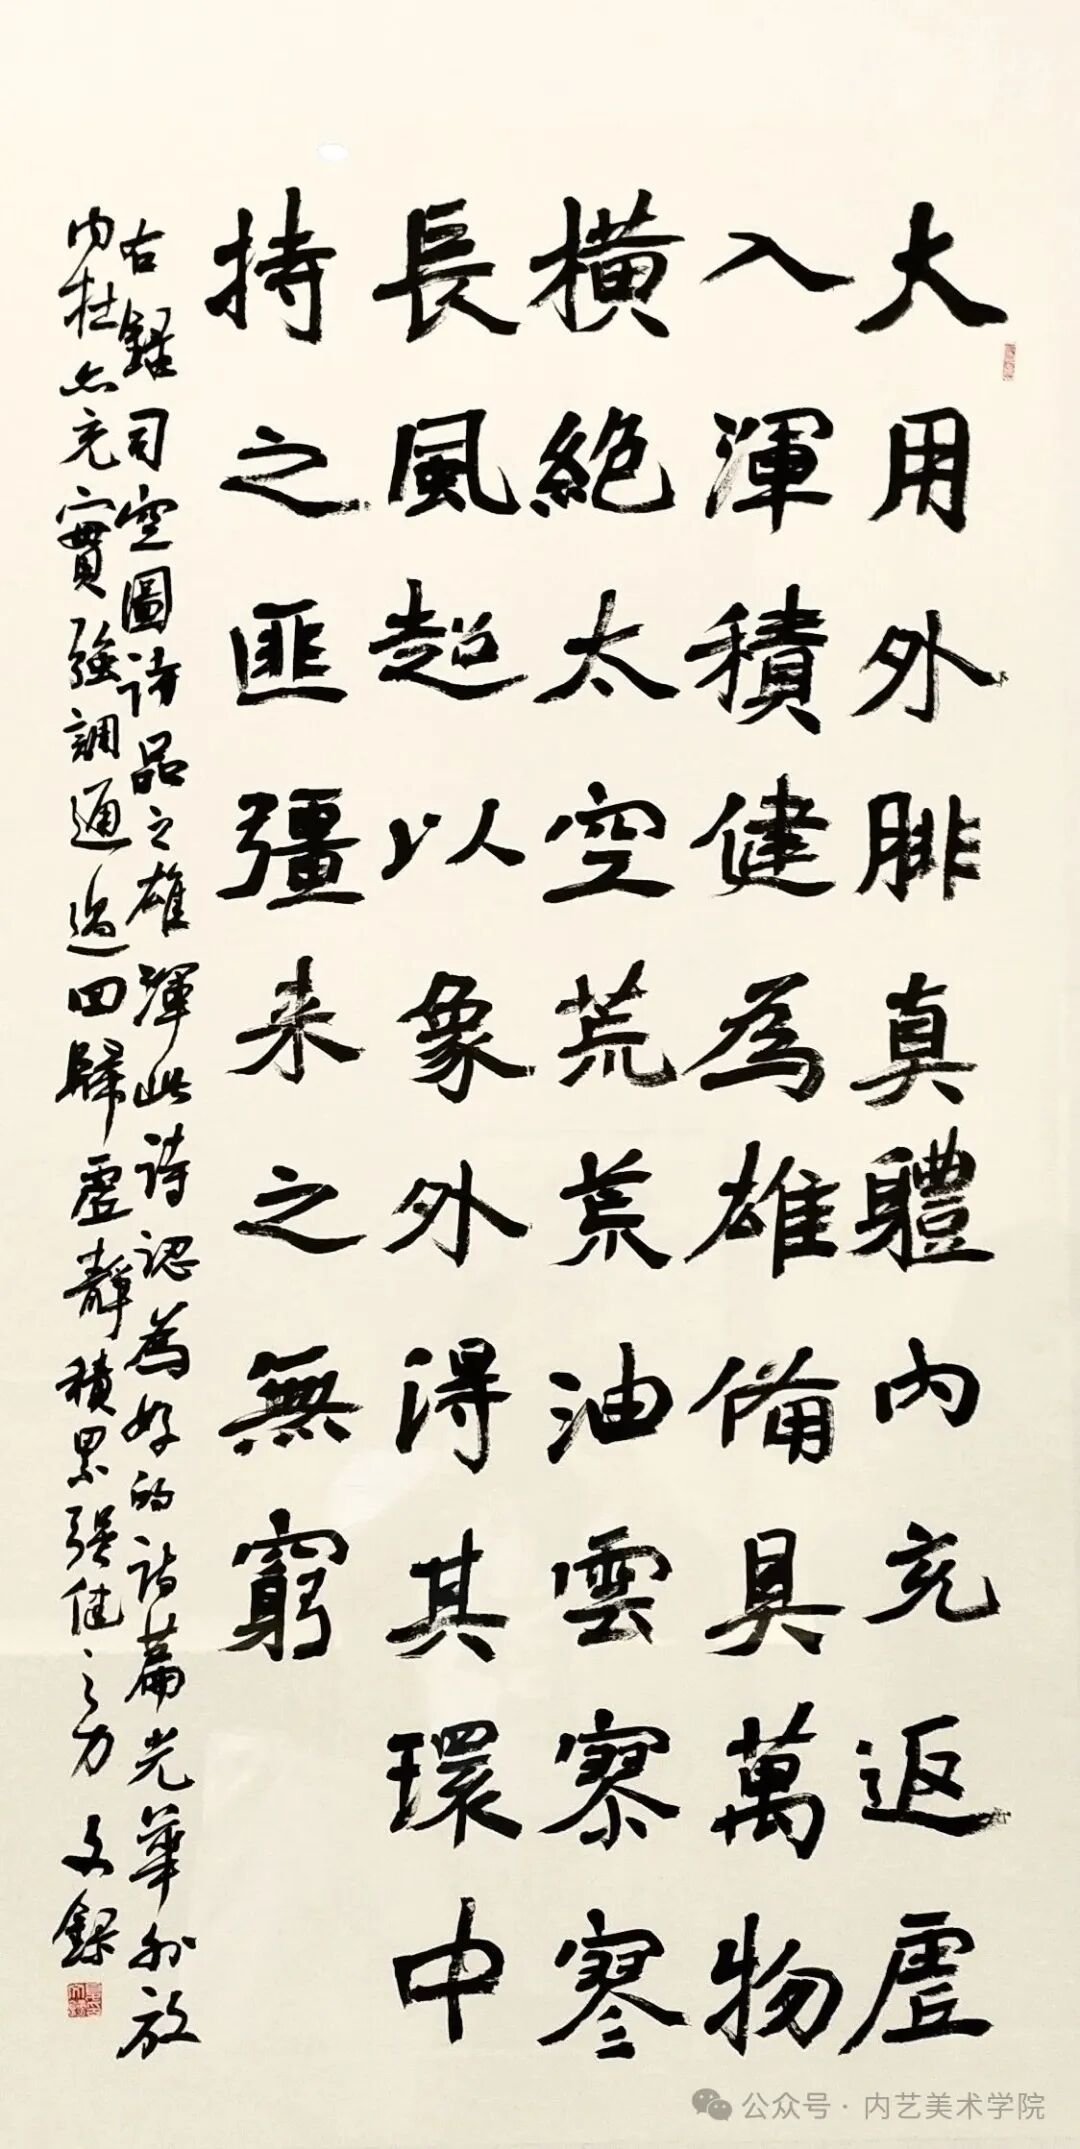 大用外腓真體內充返虛
入渾積健為雄備具萬物
橫絕太空荒荒油雲寥寥
長風超以象外得其環中
持之匪彊来之無窮
右錄司空圖詩品之雄渾此詩認為好的詩篇光華外放
內在充實強調通過回歸虛靜積累强健之力 文錄
公众号·内艺美术学院